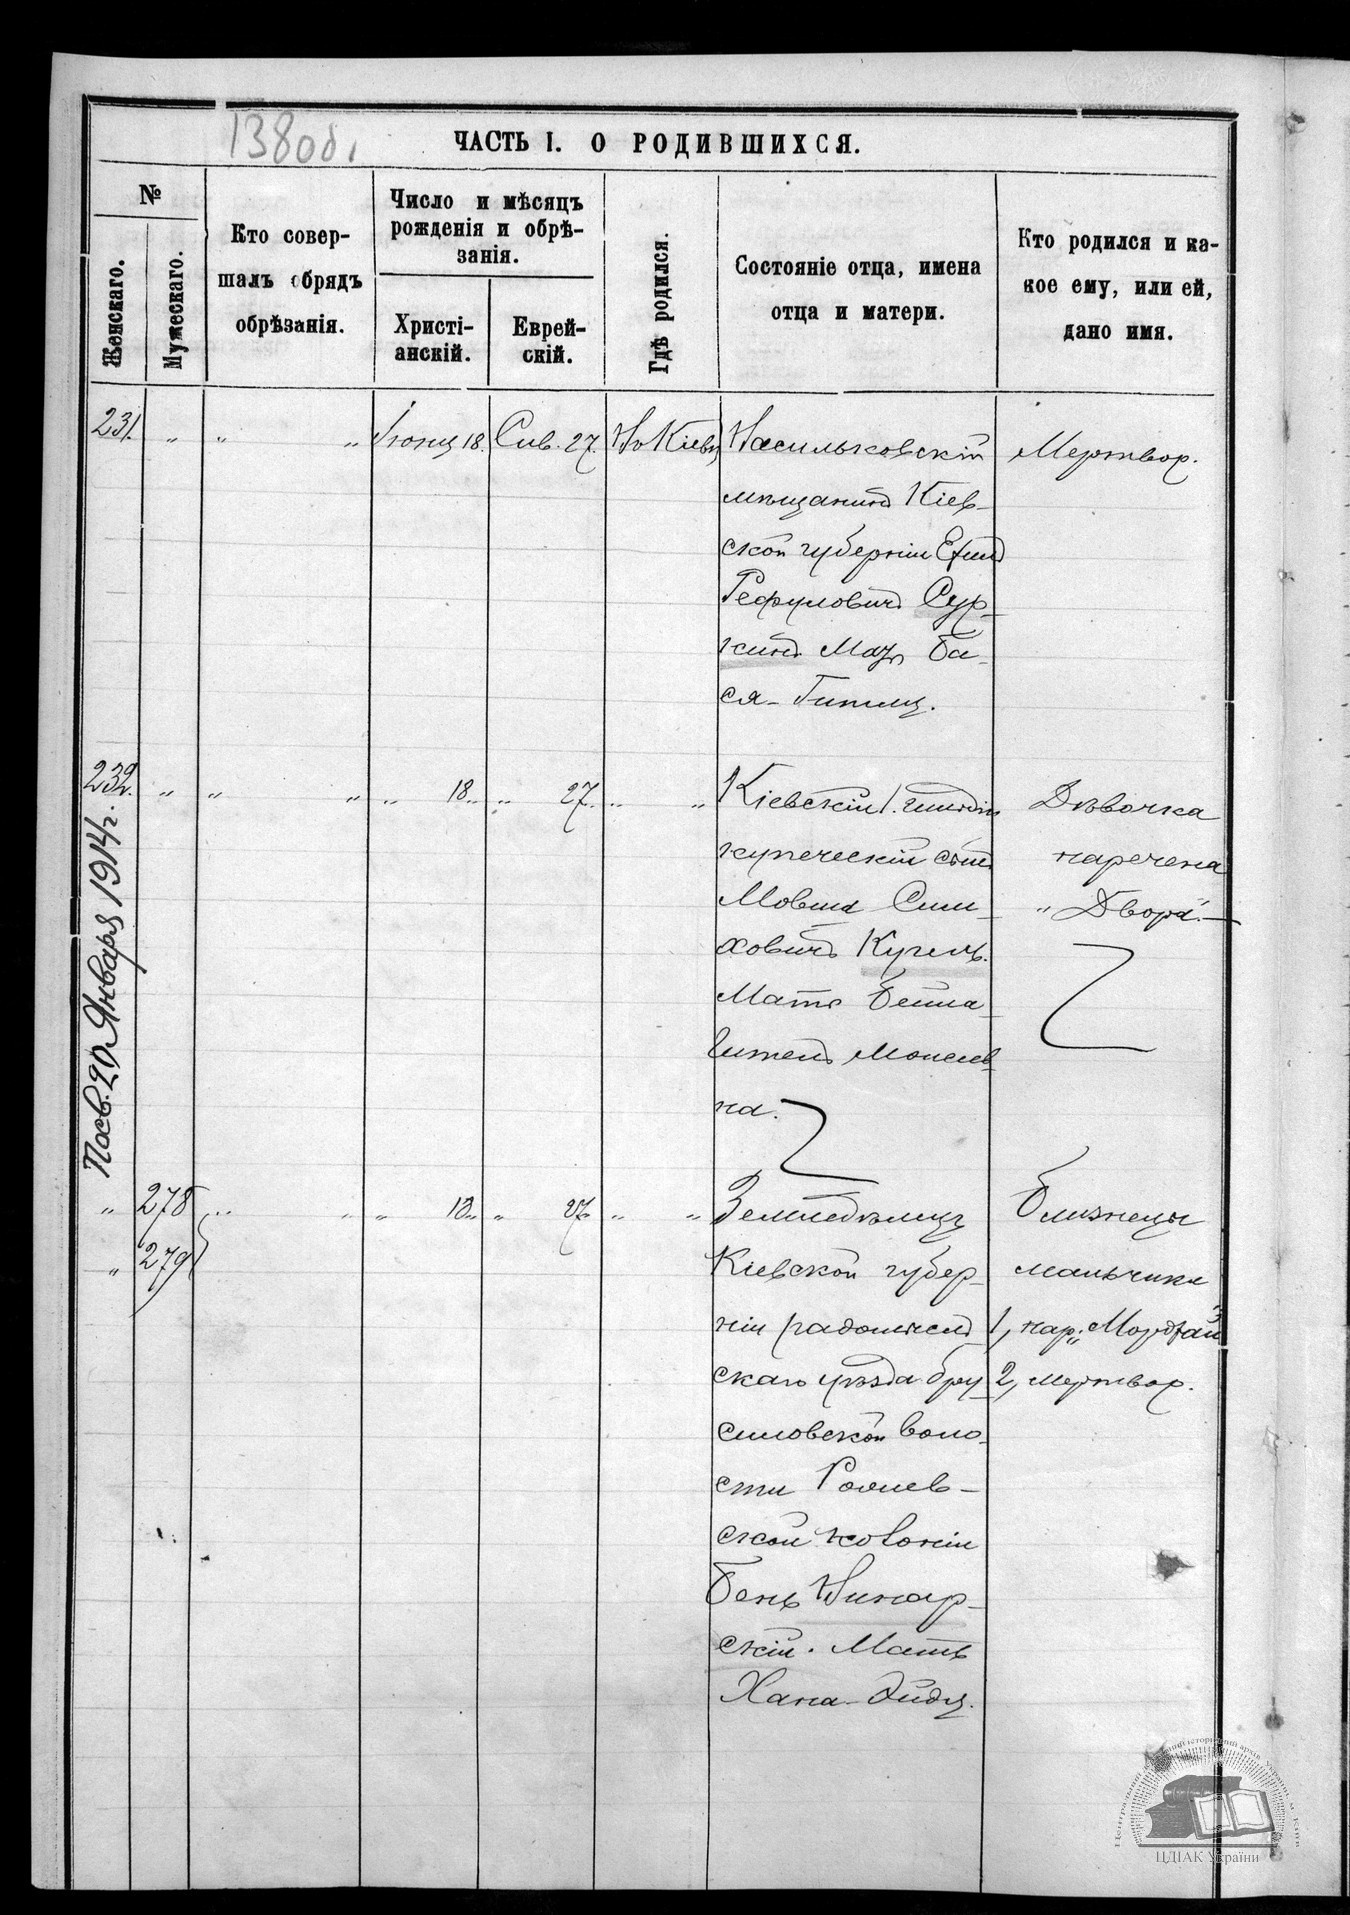 138 об.
ЧАСТЬ I. О РОДИВШИХСЯ.
№
Женскаго.
Мужескаго.
Кто совер-
шалъ обрядъ
обрѣзанія.
Число и мѣсяцъ
рожденія и обрѣ-
занія.
Христі-
анскій.
Еврей-
скій.
Гдѣ родился.
Состояніе отца, имена
отца и матери.
Кто родился и ка-
кое ему, или ей,
дано имя.
231. " " " Іюня 18. Сив. 27. Въ Кіевѣ
Васильковскій
мѣщанинъ Кіев-
ской губерніи
Сур-
кинъ Мать Ба-
ся-
Мертвор.
232. " " " " 18. " 27. " "
Кіевскій 1. гильдіи
купеческій сынъ
Мовша Сим-
ховичъ Кугель.
Мать Бейла-
Гитель Моисеев-
на.
Дѣвочка
наречена
"Двора".
Посв. 20 Января 1914 г.
" 278 " " " 18. " 27. " "
" 279
Землѣделецъ
Кіевской губер-
ніи радомысль-
скаго уѣзда бру-
силовской воло-
сти
ской колоніи
Бенъ Винар-
скій. Мать
Хана-Эйдя.
Близнецы
мальчики
1, нар. "Мордхай"
2, мертвор.
ЦДІАК України